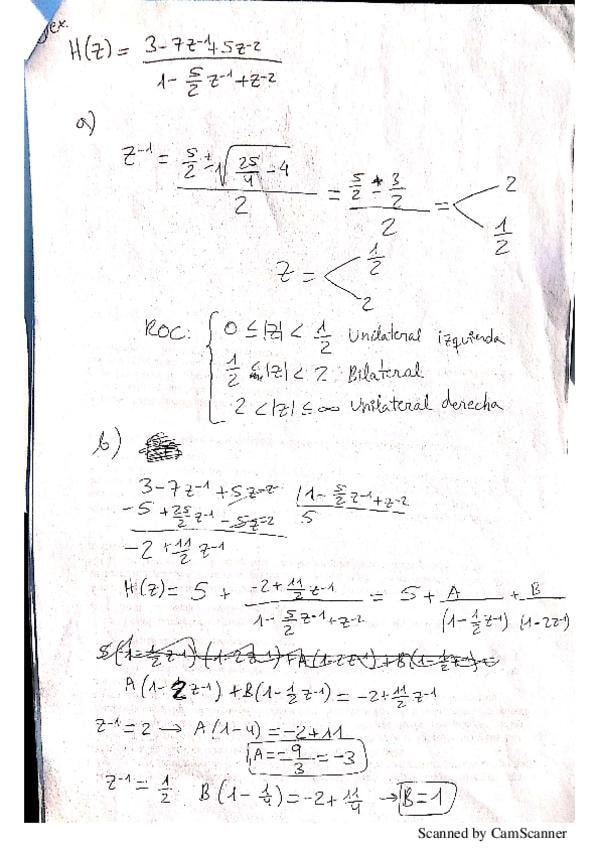 ex.
H(z) = (3 - 7z⁻¹ + 5z⁻²) / (1 - 5/2 z⁻¹ + z⁻²)
a)
z⁻¹ = (5/2 ± √(25/4 - 4)) / 2 = (5/2 ± 3/2) / 2 = < 2, 1/2
z = < 1/2, 2
ROC: { 0 ≤ |z| < 1/2 Unilateral izquierda
1/2 < |z| < 2 Bilateral
2 < |z| ≤ ∞ Unilateral derecha
b)
3 - 7z⁻¹ + 5z⁻² | 1 - 5/2 z⁻¹ + z⁻²
-5 + 25/2 z⁻¹ - 5z⁻² 5
-2 + 11/2 z⁻¹
H(z) = 5 + (-2 + 11/2 z⁻¹) / (1 - 5/2 z⁻¹ + z⁻²) = 5 + A / (1 - 1/2 z⁻¹) + B / (1 - 2z⁻¹)
5(1 - 1/2 z⁻¹)(1 - 2z⁻¹) + A(1 - 2z⁻¹) + B(1 - 1/2 z⁻¹) =
A(1 - 2z⁻¹) + B(1 - 1/2 z⁻¹) = -2 + 11/2 z⁻¹
z⁻¹ = 2 → A(1 - 4) = -2 + 11
A = -9/3 = -3
z⁻¹ = 1/2 B(1 - 1/4) = -2 + 11/4 → B = 1
Scanned by CamScanner